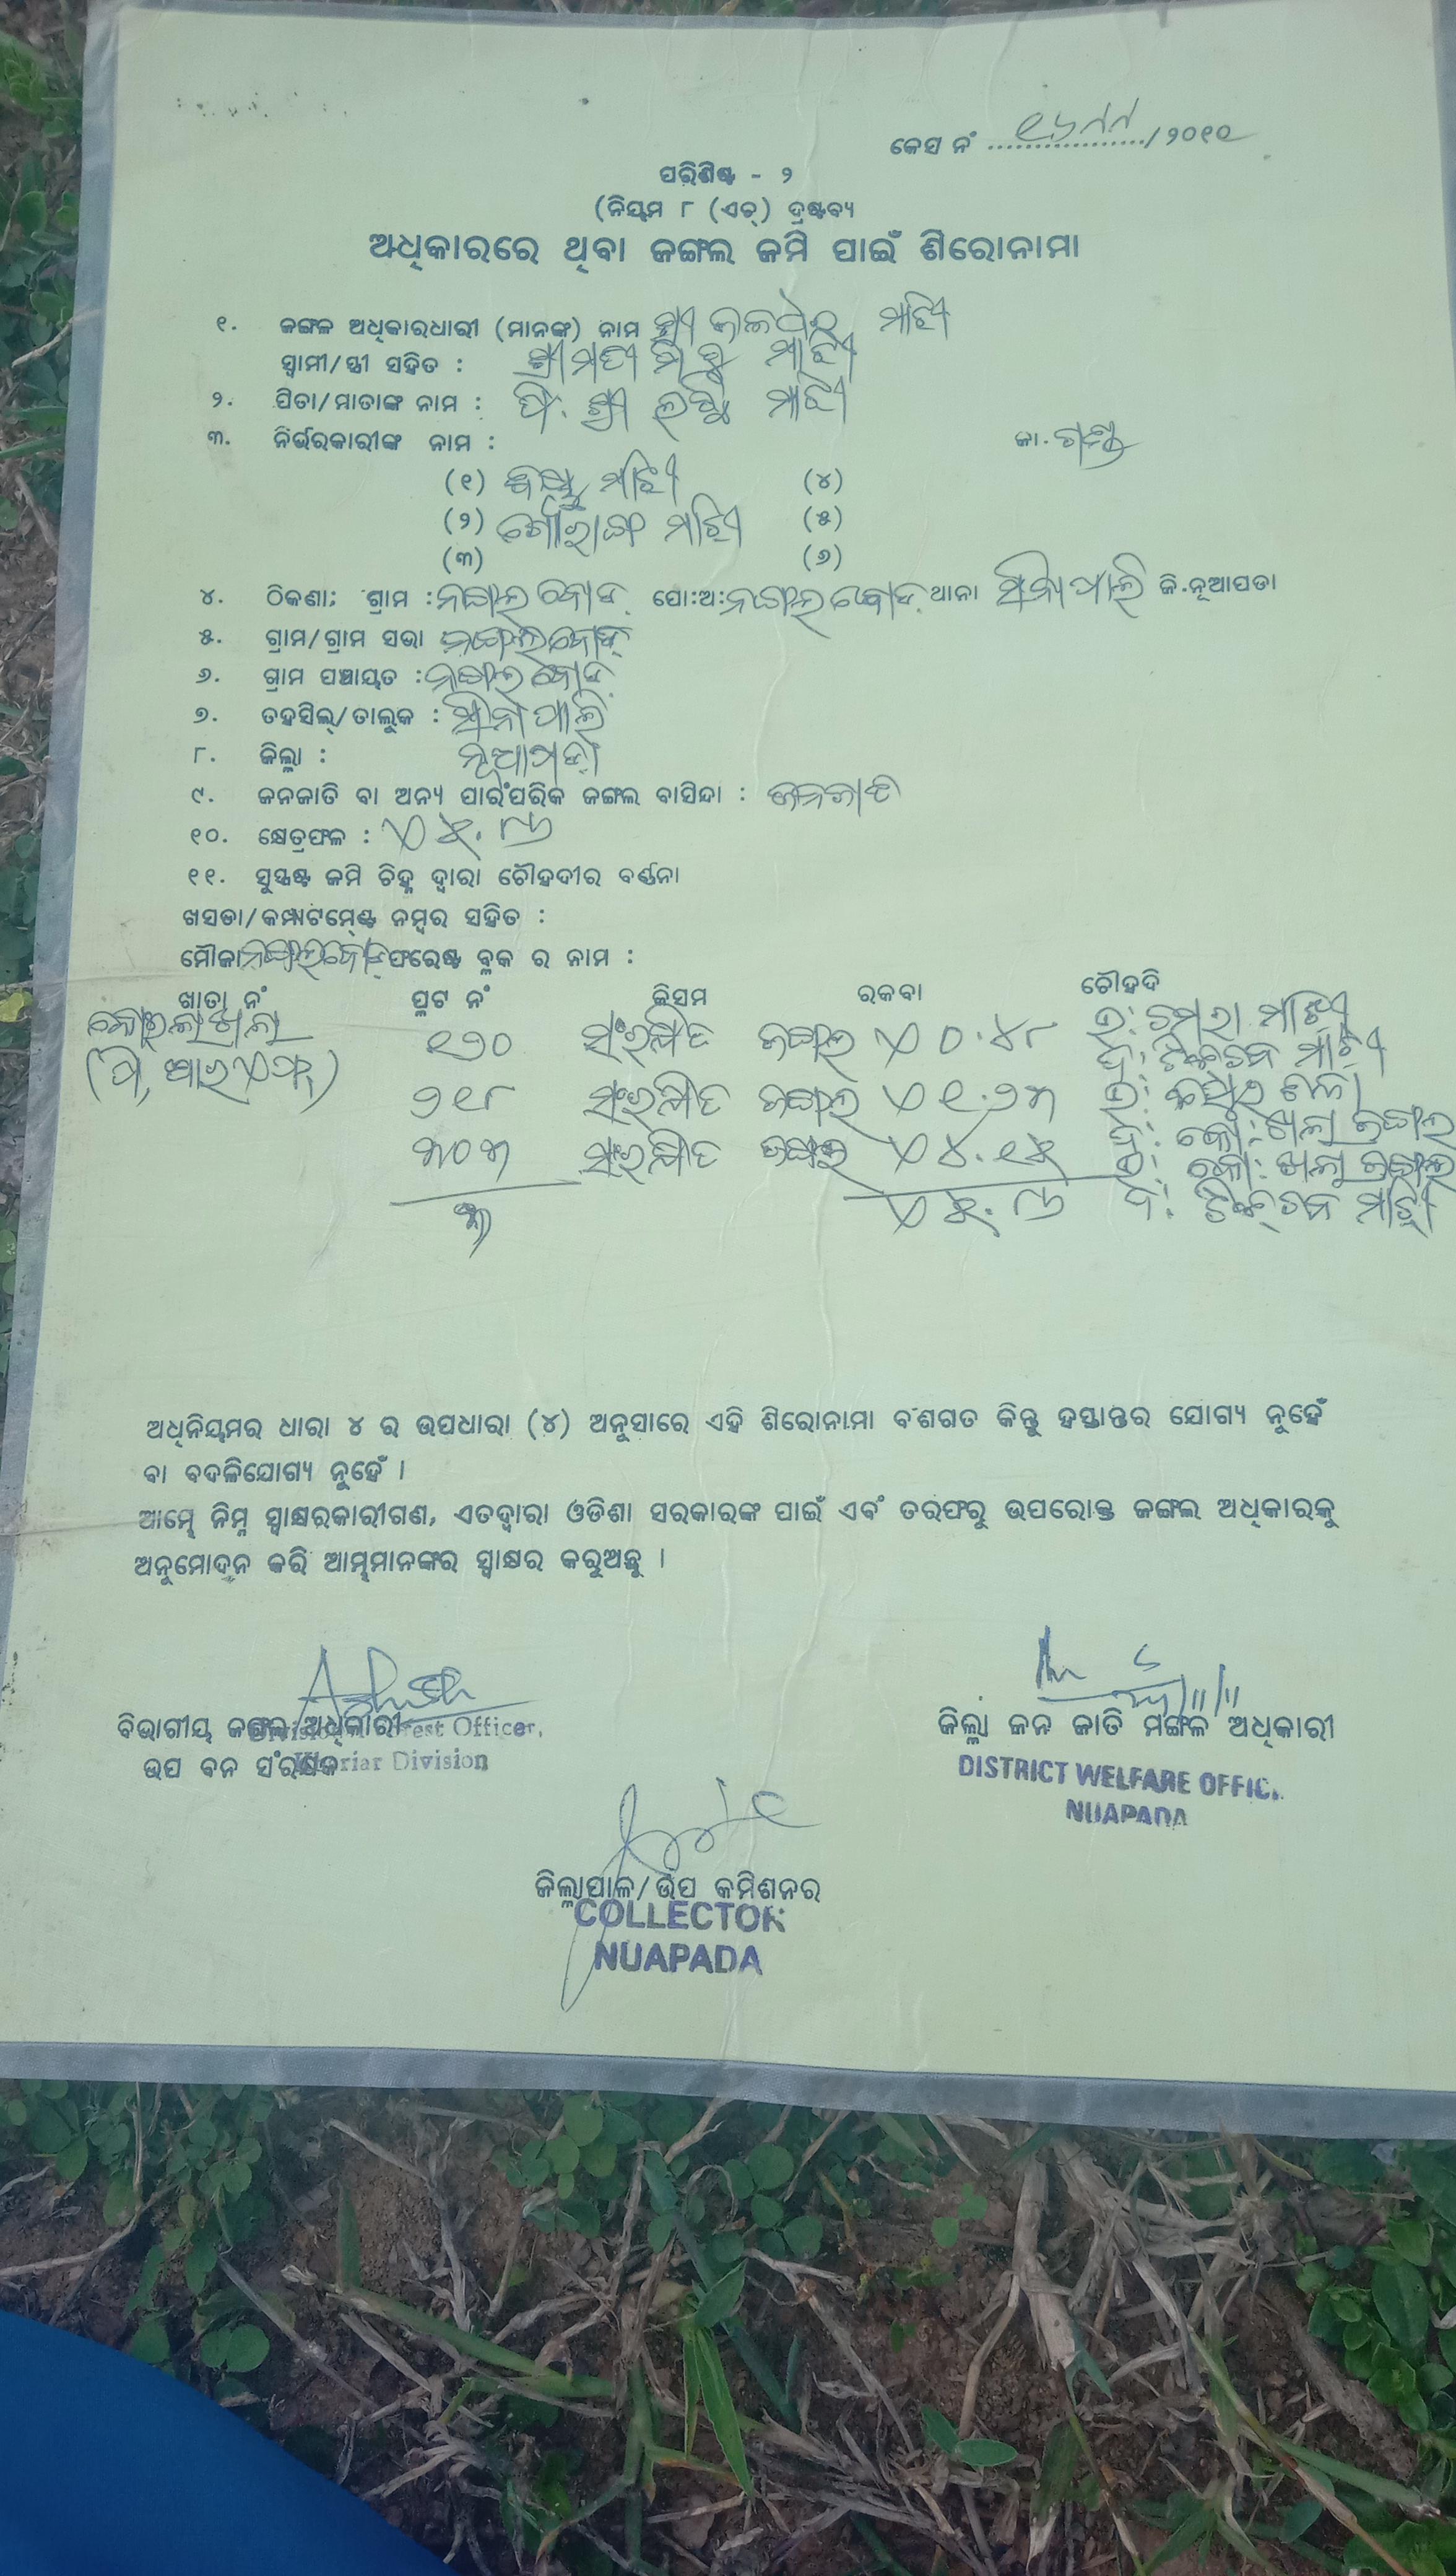 କେସ ନଂ ................/୨୦୧୦
ପରିଶିଷ୍ଟ - ୨
(ନିୟମ ୮ (ଏଚ୍) ଦ୍ରଷ୍ଟବ୍ୟ
ଅଧିକାରରେ ଥିବା ଜଙ୍ଗଲ ଜମି ପାଇଁ ଶିରୋନାମା
୧. ଜଙ୍ଗଳ ଅଧିକାରଧାରୀ (ମାନଙ୍କ) ନାମ ଶ୍ରୀ ମାଝି
ସ୍ୱାମୀ/ସ୍ତ୍ରୀ ସହିତ : ଶ୍ରୀମତୀ ମାଝି
୨. ପିତା/ମାତାଙ୍କ ନାମ : ପି. ଶ୍ରୀ ମାଝି
୩. ନିର୍ଭରକାରୀଙ୍କ ନାମ : ଜା. ଗଣ୍ଡ
(୧) ମାଝି (୪)
(୨) ଗୌରାଙ୍ଗ ମାଝି (୫)
(୩) (୬)
୪. ଠିକଣା: ଗ୍ରାମ : ନଙ୍ଗଲବୋଡ଼ ପୋ:ଅ: ନଙ୍ଗଲବୋଡ଼ ଥାନା ସିନାପାଲି ଜି.ନୂଆପଡା
୫. ଗ୍ରାମ/ଗ୍ରାମ ସଭା ନଙ୍ଗଲବୋଡ଼
୬. ଗ୍ରାମ ପଞ୍ଚାୟତ : ନଙ୍ଗଲବୋଡ଼
୭. ତହସିଲ୍/ତାଲୁକ : ସିନାପାଲି
୮. ଜିଲ୍ଲା : ନୂଆପଡ଼ା
୯. ଜନଜାତି ବା ଅନ୍ୟ ପାରଂପରିକ ଜଙ୍ଗଲ ବାସିନ୍ଦା : ଜନଜାତି
୧୦. କ୍ଷେତ୍ରଫଳ : ଏ ୫.୮୬
୧୧. ସୁସ୍ପଷ୍ଟ ଜମି ଚିହ୍ନ ଦ୍ୱାରା ଚୌହଦୀର ବର୍ଣ୍ଣନା
ଖସଡା/କମ୍ପାଟମେଣ୍ଟ ନମ୍ବର ସହିତ :
ମୌଜା ନଙ୍ଗଲବୋଡ଼ ଫରେଷ୍ଟ ବ୍ଲକ ର ନାମ :
ଖାତା ନଂ ପ୍ଲଟ ନଂ କିସମ ରକବା ଚୌହଦି
୧୨୦ ସଂରକ୍ଷିତ ଜଙ୍ଗଲ ଏ ୦.୪୮ ଉ: ମାଝି
(ପି, ଆର ଏଫ୍) ଦ: ମାଝି
୨୧୮ ସଂରକ୍ଷିତ ଜଙ୍ଗଲ ଏ ୧.୨୩ ଉ:
ଦ: ଜଙ୍ଗଲ
୩୦୩ ସଂରକ୍ଷିତ ଜଙ୍ଗଲ ଏ ୪.୧୫ ଉ: ଜଙ୍ଗଲ
୩ ଏ ୫.୮୬ ଦ: ମାଝି
ଅଧିନିୟମର ଧାରା ୪ ର ଉପଧାରା (୪) ଅନୁସାରେ ଏହି ଶିରୋନାମା ବଂଶଗତ କିନ୍ତୁ ହସ୍ତାନ୍ତର ଯୋଗ୍ୟ ନୁହେଁ
ବା ବଦଳିଯୋଗ୍ୟ ନୁହେଁ ।
ଆମ୍ଭେ ନିମ୍ନ ସ୍ୱାକ୍ଷରକାରୀଗଣ, ଏତଦ୍ୱାରା ଓଡିଶା ସରକାରଙ୍କ ପାଇଁ ଏବଂ ତରଫରୁ ଉପରୋକ୍ତ ଜଙ୍ଗଲ ଅଧିକାରକୁ
ଅନୁମୋଦନ କରି ଆମ୍ଭମାନଙ୍କର ସ୍ୱାକ୍ଷର କରୁଅଛୁ ।
ବିଭାଗୀୟ ଜଙ୍ଗଲ ଅଧିକାରୀ
Divisional Forest Officer,
ଉପ ବନ ସଂରକ୍ଷକ
Khariar Division
ଜିଲ୍ଲା ଜନ ଜାତି ମଙ୍ଗଳ ଅଧିକାରୀ
DISTRICT WELFARE OFFIC.
NUAPADA
ଜିଲ୍ଲାପାଳ/ଉପ କମିଶନର
COLLECTOR
NUAPADA